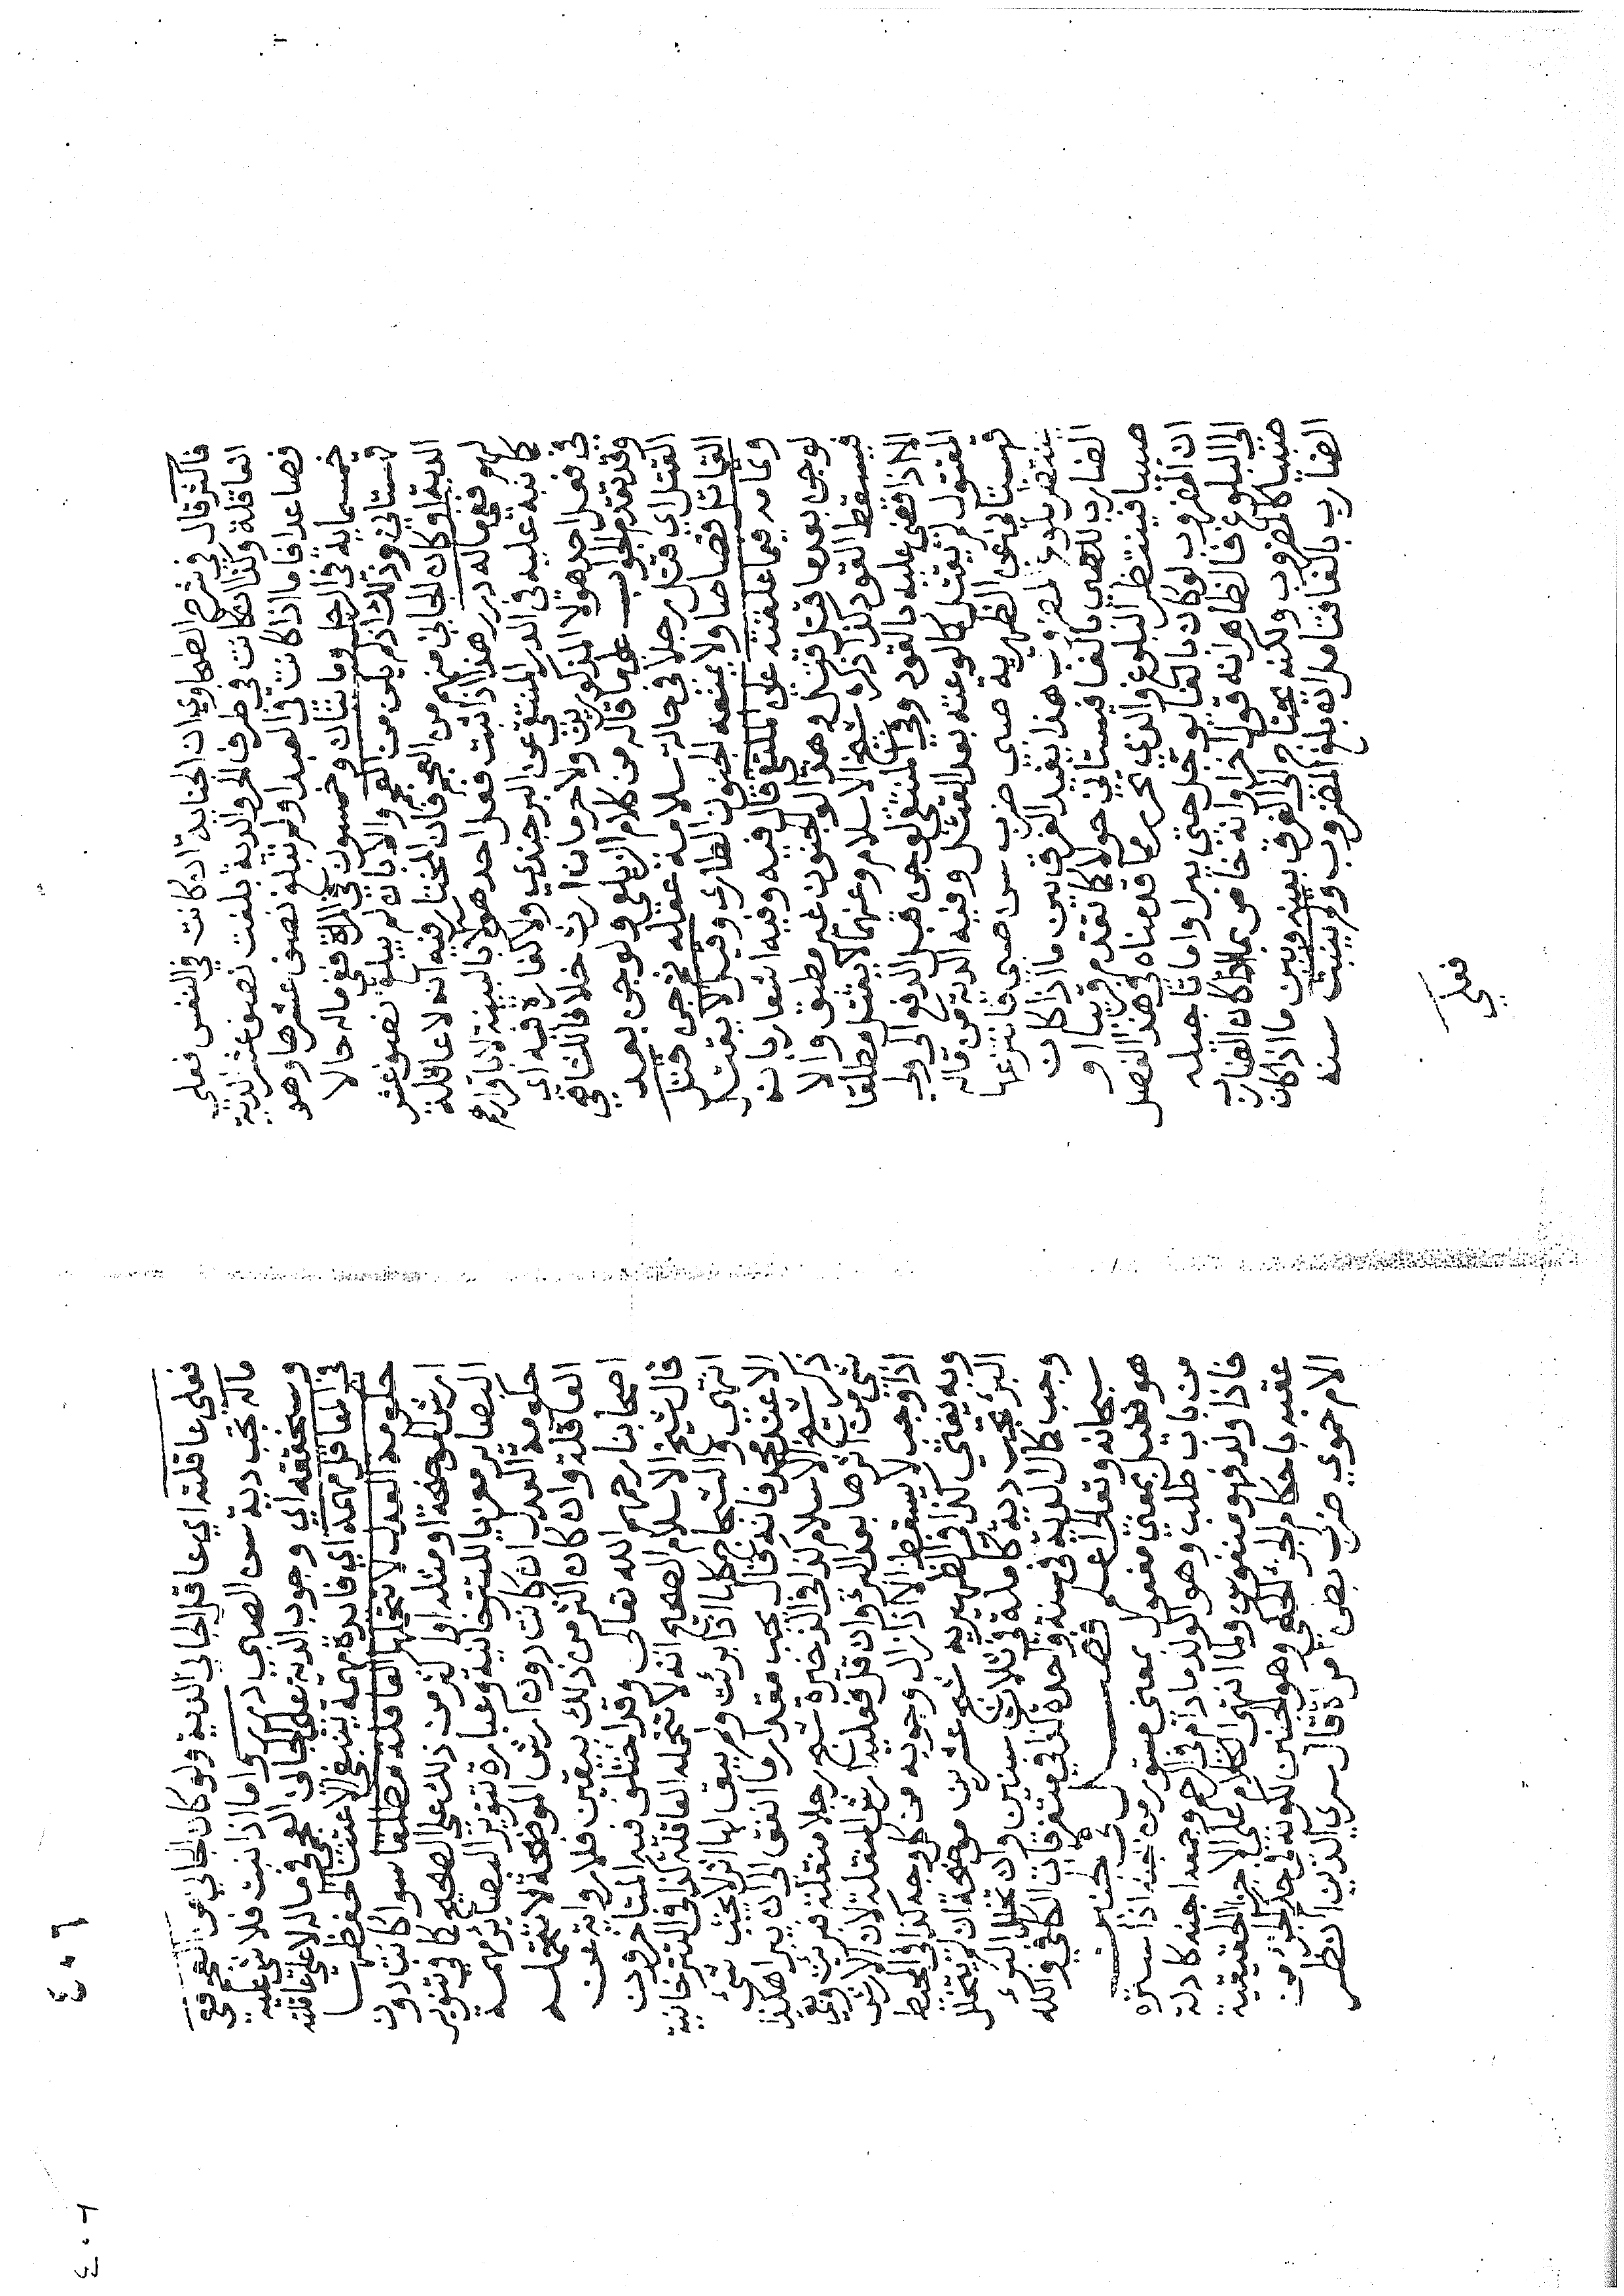 فاكثر قال في شرح الطحاوي ان الجناية ان كانت في النفس فعلى
العاقلة وكذا ان كانت في طرف الحر والدية بلغت نصف عشر الدية
فصاعدا فاما اذا كانت في العبد او لم تبلغ نصف عشرها وهو
خمسماية في الرجل ومائتان وخمسون في المرأة ففي ماله حالا
قهستاني وذلك اذ لم يكن من العجم والا بان لم يبلغ نصف عشر
الدية او كان الجاني منهم من العجم فان المختار فيه انه لا عاقلة
لهم ففي ماله درر هذا اذا ثبت فعل احد هولا بالبينة لا باقرارهم
كما نبه عليه في الدر المنتقى عن البرجندي ولا كفارة فيه اي
في فعل احد هولا المذكورين ولا حرمان ارث خلافا للشافعي
وقد تقدم الجواب عما قاله من كلام الزيلعي ولو جن بعد
القتل اي قتل رجلا في حالة سلامة عقله ثم جن قتل
القاتل قصاصا ولا يمنعه الجنون الطاري وقيل لا يقتل
وتمامه فيما علقته على الملتقى قال فيه وفيه اشعار بانه
لو جن بعد ما قتل قتل وهذا لو الجنون غير مطبق والا
فيسقط القود كذا ذكره شيخ الاسلام وعنهما لا يقتل مطلقا
الا اذا قضي عليه بالقود وفي المنتقى لو جن قبل الدفع الى ولي
المقتول لم يقتل كما لو عته بعد القتل وفيه الدية من ماله
قهستاني عن الظهيرية صبي ضرب سن صبي فانتزعها
ينتظر بلوغ المضروب هذا يفيد الفرق بين ما اذا كان
الضارب للصبي بالغا فيستاني حولا كما تقدم قريبا او
صبيا فينتظر البلوغ والذي تحرر مما قدمناه في هذا الفصل
ان المضروب لو كان بالغا يوجل حتى يبرا واما تاجيله
الى البلوغ فالظاهر انه قول اخر او انه خاص بما اذا كان الضارب
صبيا كالمضروب ولكنه يحتاج الى الفرق بينه وبين ما اذا كان
الضارب بالغا فتامل ان بلغ المضروب ولم ينبت سنه
فعلى
٤٠٦
فعلى عاقلته اي عاقلة الجاني الدية ولو كان الجاني من العجم ففي
ماله تجب دية سن الصبي درر واما اذا نبت فلا شي عليه
وسنحققه اي وجوب الدية على الجاني العجمي في ماله لا على عاقلته
في المعاقل مهمة اي فائدة مهمة ينبغي الاعتنا بحفظها
حكومة العدل لا تتحملها العاقلة مطلقا سوا كانت دون
ارش الموضحة او مثله او اكثر من ذلك على الصحيح كما في تنوير
البصاير معزيا للتترخانية وعبارة تنوير البصائر مهمة
حكومة العدل ان كانت دون ارش الموضحة لا تتحمله
العاقلة وان كان اكثر من ذلك بيقين فلا رواية عن
اصحابنا رحمهم الله تعالى وقد اختلف فيه المتاخرون
قال شيخ الاسلام الصحيح انه لا تتحمله العاقلة كذا في التترخانية
انتهى والشجاج كلها اذا برئت ولم يبق لها اثر لا يجب شي
الا عند محمد فانه قال يجب مقدار ما انفق الى ان يبرا هكذا
ذكر شيخ الاسلام كذا في الذخيرة شج رجلا منقلة فبرئت وبقي
شي من اثرها بعد البرؤ وان قل فعليه ارش المنقلة لان الارش
اذا وجب لا يسقط الا اذا زال وجوبه من كل وجه كذا في المحيط
وبه يفتى كذا في الظهيرية شج عشرين موضحة ان لم يتخلل
البرؤ تجب دية كاملة في ثلاث سنين وان تخلل البرؤ
وجب كمال الدية في سنة واحدة كذا في متفرقات الكافي والله
سبحانه وتعالى اعلم فصل في الجنين
هو فعيل بمعنى مفعول بمعنى مستور من جنه اذا ستره
من باب طلب وهو الولد ما دام في الرحم وجمعه اجنة كادلة
فاذا ولد فهو منفوس ولما انتهى الكلام على الاجزا الحقيقية
عقبه باحكام الجز الحكمي وهو الجنين لكونه في حكم الجزء من
الام حموي ضرب بطن امراة قال سري الدين انظر